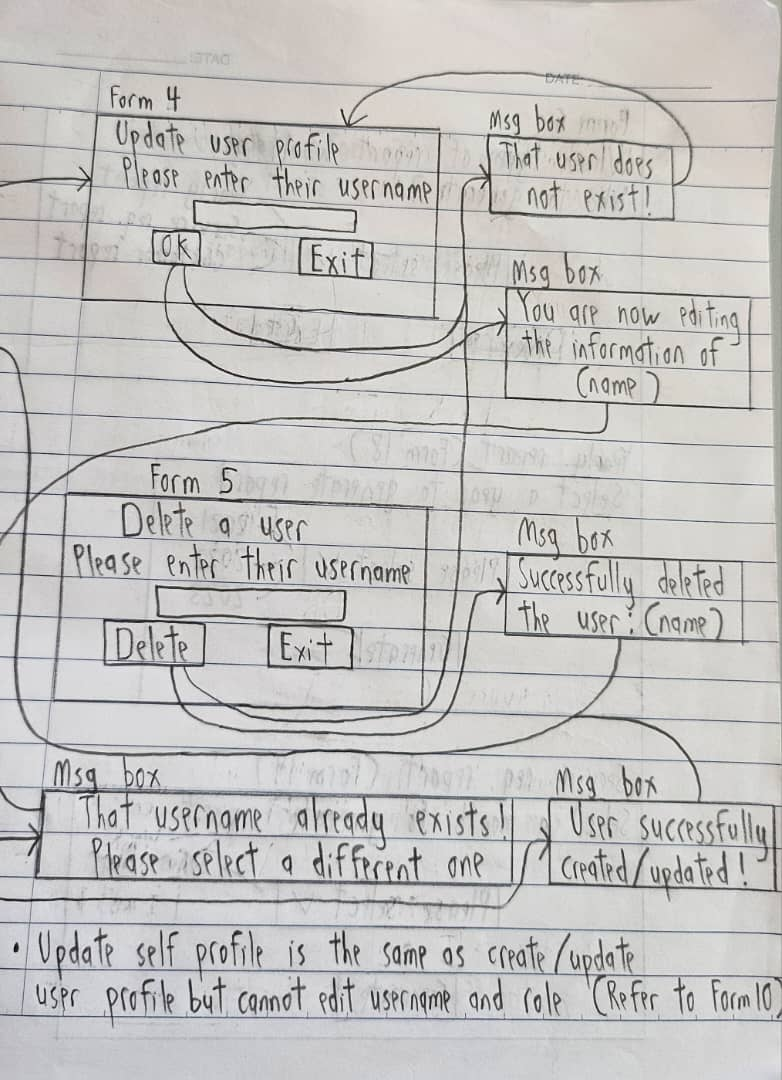 DATE
Form 4
Update user profile
Please enter their username
OK
Exit
Msg box
That user does
not exist!
Msg box
You are now editing
the information of
(name)
Form 5
Delete a user
Please enter their username
Delete
Exit
Msg box
Successfully deleted
the user: (name)
Msg box
That username already exists!
Please select a different one
Msg box
User successfully
created/updated!
• Update self profile is the same as create/update
user profile but cannot edit username and role (Refer to Form 10)